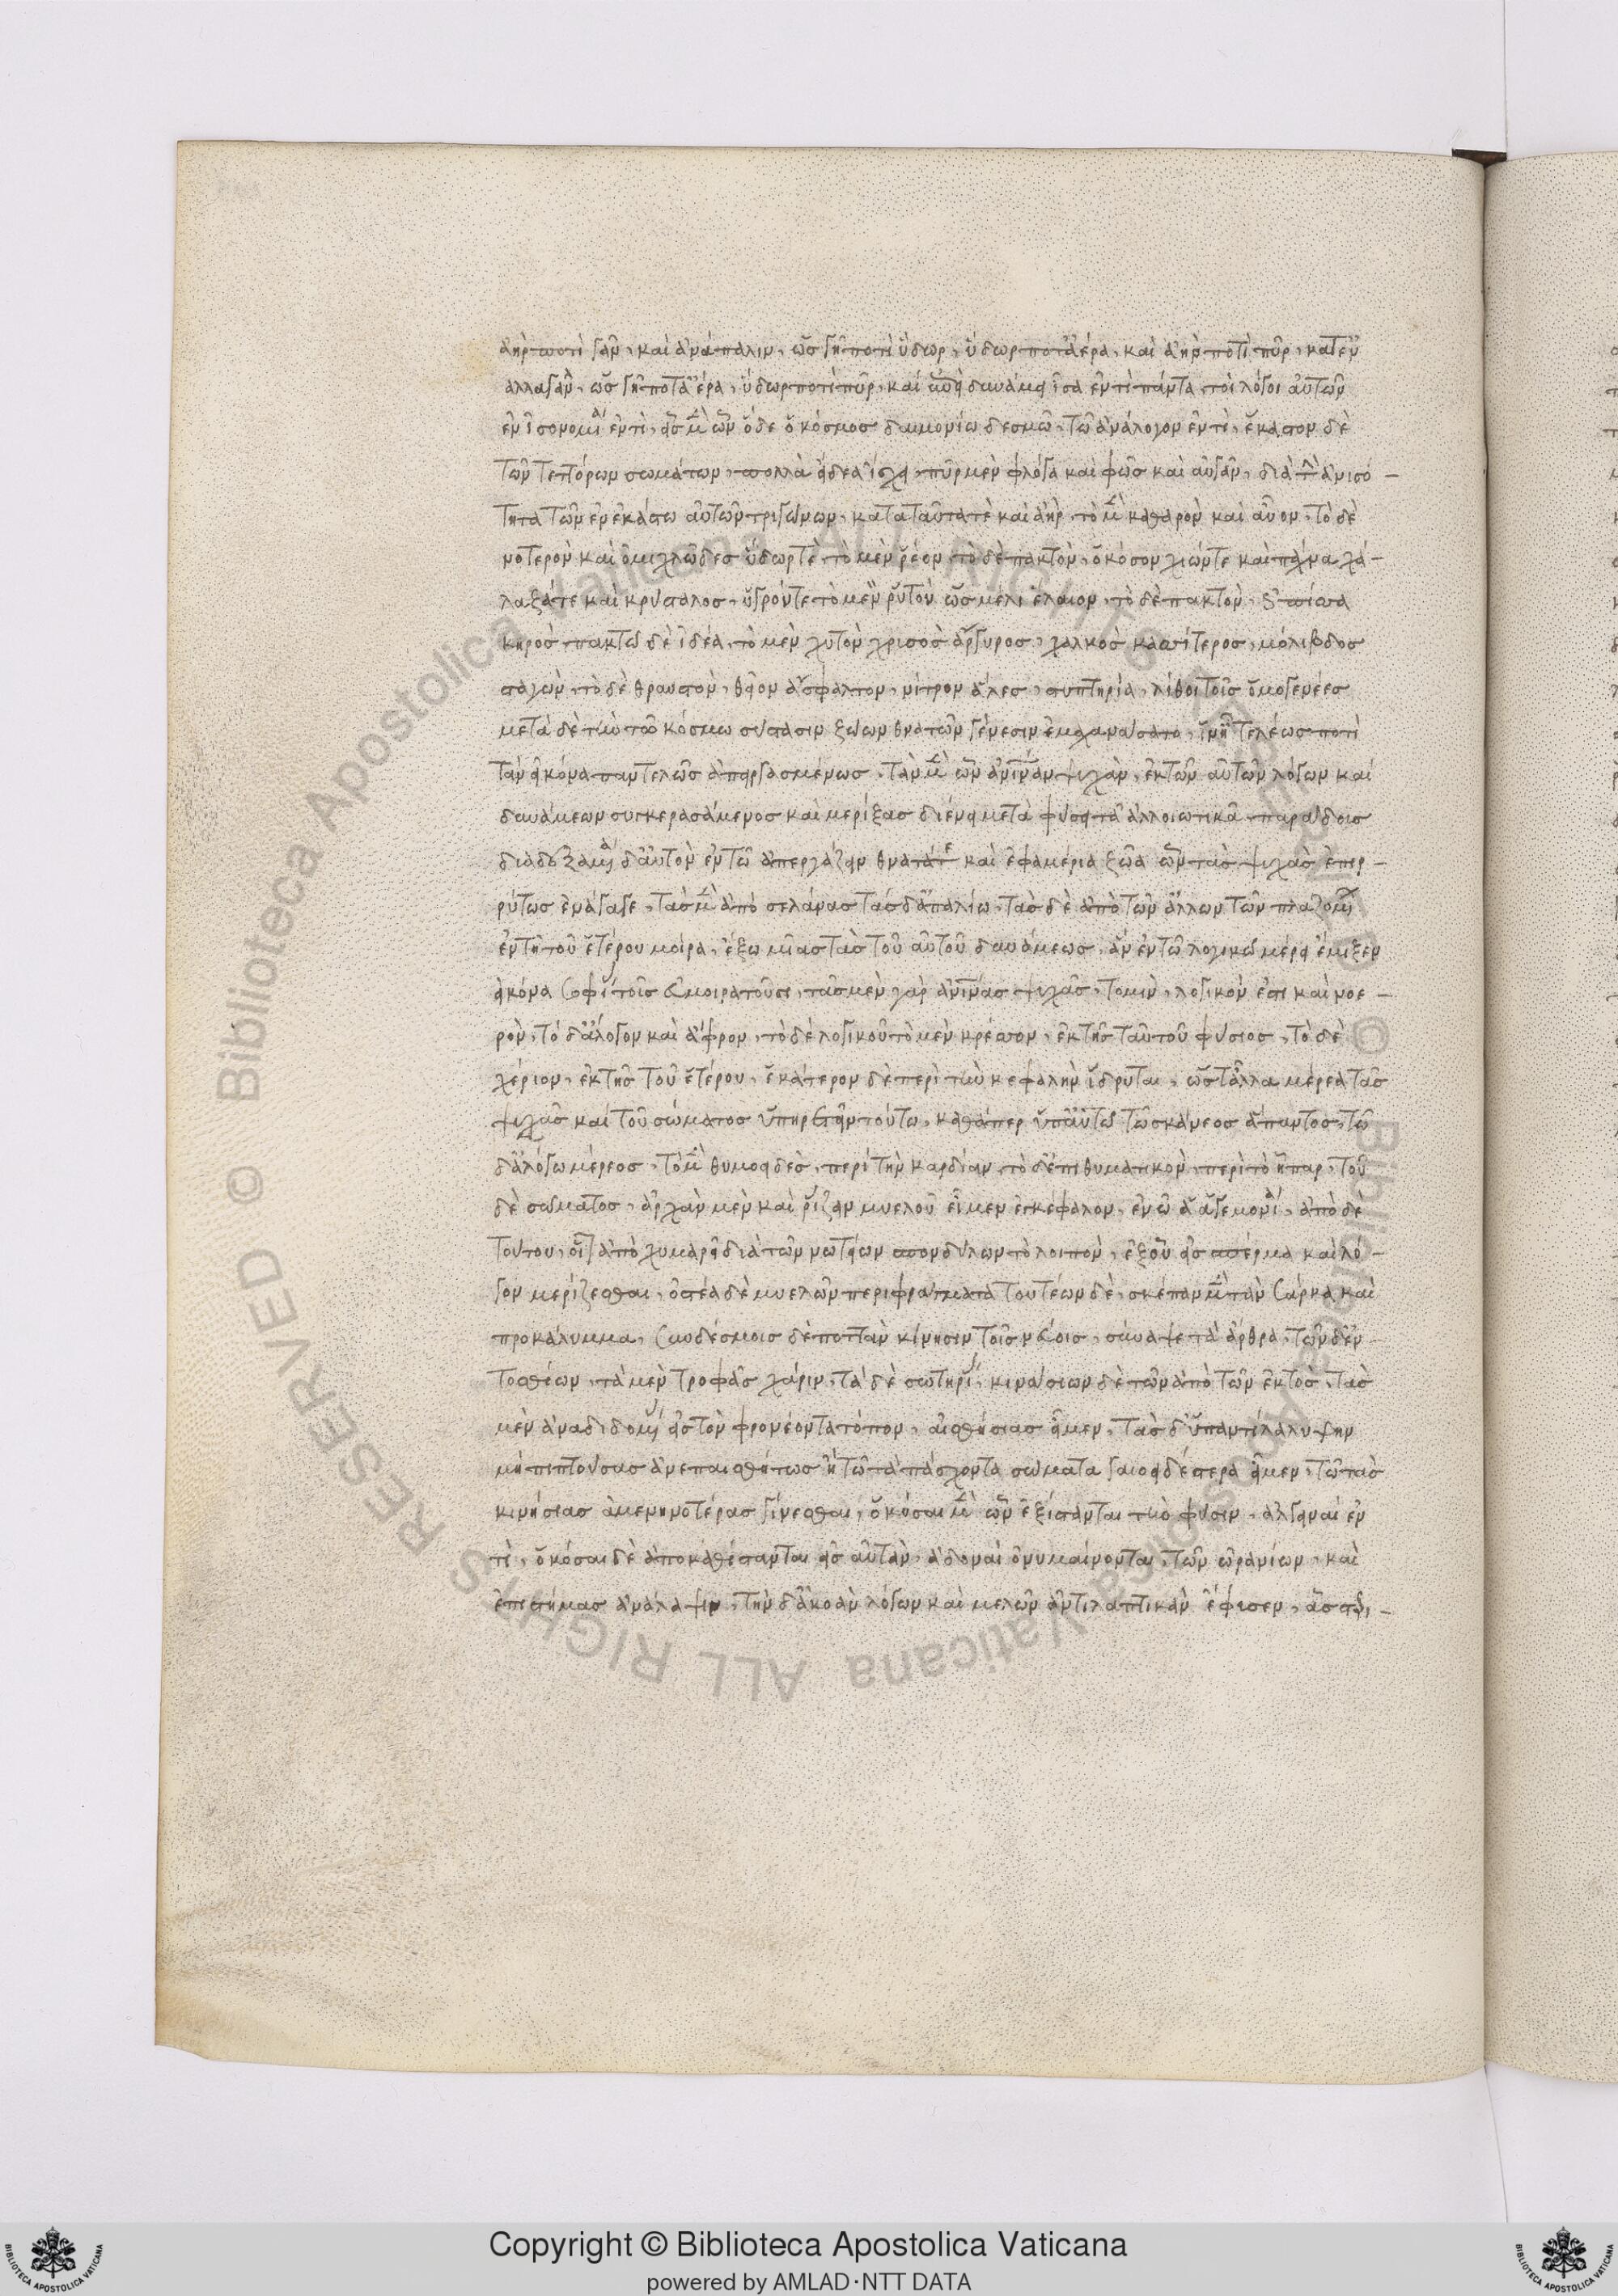 ἀὴρ ποτὶ γᾶν, καὶ ἀνάπαλιν, ὡς γῆ ποτὶ ὕδωρ, ὕδωρ ποτ' ἀέρα, καὶ ἀὴρ ποτὶ πῦρ, κατ' ἐν
αλλαγὰν, ὡς γῆ ποτ' ἀέρα, ὕδωρ ποτὶ πῦρ, καὶ δυνάμει ἴσα ἐντὶ πάντα, τοὶ λόγοι αὐτῶν
ἐν ἰσονομίαι ἐντὶ, εἷς μὲν ὢν ὅδε ὁ κόσμος δαιμονίω δεσμῶ, τῶ ἀνάλογον ἐντὶ, ἕκαστον δὲ
τῶν τεττόρων σωμάτων, πολλὰ εἴδεα ἴσχει, πῦρ μὲν φλόγα καὶ φῶς καὶ αὐγᾶν, διὰ τὴν ἀνισό-
τητα τῶν ἐν ἑκάστω αὐτῶν τριγώνων, κατὰ ταῦτα τὲ καὶ ἀὴρ, τὸ μὲν καθαρὸν καὶ αὖον, τὸ δὲ
νοτερὸν καὶ ὁμιχλῶδες ὕδωρ τὲ, τὸ μὲν ῥέον, τὸ δὲ πακτὸν, ὁκόσον χιών τε καὶ πάχνα χά-
λαζά τε καὶ κρύσταλος, ὑγρόν τε τὸ μὲν ῥυτὸν ὡς μέλι ἔλαιον, τὸ δὲ πακτὸν, ὡς πίσσα
κηρὸς πακτῶ δὲ ἰδέα, τὸ μὲν χυτὸν χρισὸς ἄργυρος, χαλκὸς κασσίτερος, μόλιβδος
σταγὼν, τὸ δὲ θραυστὸν, θεῖον ἄσφαλτον, νίτρον ἅλες, στυπτηρία, λίθοι τοῖς ὁμογενέες
μετὰ δὲ τὴν τοῦ κόσμω σύστασιν ζώων θνατῶν γένεσιν ἐμαχανάσατο, ἵν' ἦ τελέως ποτὶ
τὰν εἰκόνα παντελῶς ἀπειργασμένως, τὰν μὲν ὢν ἀνθρωπίναν ψυχὰν, ἐκ τῶν αὐτῶν λόγων καὶ
δυνάμεων συγκερασάμενος καὶ μερίξας διένειμε τᾶ φύσει τᾶ ἀλλοιωτικᾶ παραδοὺς
διαδεξαμένα δ' αὐτὸν ἐν τῶ ἀπεργάζειν θνατά τε καὶ ἐφαμέρια ζῶα ὧν τὰς ψυχὰς ἐπερ-
ρύτως ἐνάγαγε, τὰς μὲν ἀπὸ σελάνας τὰς δ' ἀπ' ἁλίω, τὰς δὲ ἀπὸ τῶν ἄλλων τῶν πλαζομένων
ἐν τῆ τοῦ ἑτέρου μοίρα, ἔξω μιᾶς τᾶς τοῦ αὐτοῦ δυνάμεως, ἃν ἐν τῶ λογικῶ μέρει ἔμιξεν
εἰκόνα σοφίας τοῖς εὐμοιρατοῦσι, τᾶς μὲν γὰρ ἀνθρωπίνας ψυχᾶς, τὸ μὲν λογικόν ἐστι καὶ νοε-
ρὸν, τὸ δ' ἄλογον καὶ ἄφρον, τὸ δὲ λογικοῦ τὸ μὲν κρέσσον, ἐκ τῆς ταυτοῦ φύσιος, τὸ δὲ
χέριον, ἐκ τῆς τοῦ ἑτέρου, ἑκάτερον δὲ περὶ τὴν κεφαλὴν ἵδρυται, ὡς τἆλλα μέρεα τᾶς
ψυχᾶς καὶ τοῦ σώματος ὑπηρετεῖν τούτω, καθάπερ ὑπ' αὐτῶ τῶ σκάνεος ἅπαντος, τῶ
δ' ἀλόγω μέρεος, τὸ μὲν θυμοειδὲς, περὶ τὴν καρδίαν, τὸ δ' ἐπιθυματικὸν, περὶ τὸ ἧπαρ, τοῦ
δὲ σώματος, ἀρχὰν μὲν καὶ ῥίζαν μυελοῦ εἶμεν ἐγκέφαλον, ἐν ὧ ἁ ἁγεμονία, ἀπὸ δὲ
τούτου, οἷον ἀπόχυμα ῥεῖ διὰ τῶν νωτείων σπονδύλων τὸ λοιπὸν, ἐξ οὗ εἰς σπέρμα καὶ λό-
γον μερίζεσθαι, ὀστέα δὲ μυελῶν περιφράγματα τουτέων δὲ, σκέπαν μὲν τὰν σάρκα καὶ
προκάλυμμα, συνδέσμοις δὲ ποττὰν κίνησιν τοῖς νεύροις, σύναψε τὰ ἄρθρα, τῶν δ' ἐν
τοσθίων, τὰ μὲν τροφᾶς χάριν, τὰ δὲ σωτηρίας, κινασίων δὲ τῶν ἀπὸ τῶν ἐκτὸς, τὰς
μὲν ἀναδιδομένας εἰς τὸν φρονέοντα τόπον, αἰσθήσιας εἶμεν, τὰς δ' ὑπ' ἀντίλαλυψην
μὴ πιπτούσας ἀνεπαισθήτως ἢ τῶ τὰ πάσχοντα σώματα γαιοειδέστερα εἶμεν, τῶ τὰς
κινήσιας ἀμενηνοτέρας γίνεσθαι, ὁκόσαι μὲν ὢν ἐξίσταντι τὴν φύσιν, ἀλγειναί ἐν
τὶ, ὁκόσαι δὲ ἀποκαθίσταντι εἰς αὐτὰν, ἁδοναὶ ὀνυμαίνονται, τῶν ὠρανίων, καὶ
ἐπιστήμας ἀνάλαψιν, τὴν δ' ἀκοὰν λόγων καὶ μελῶν ἀντιλαπτικὰν ἔφυσεν, ἇς στερι-